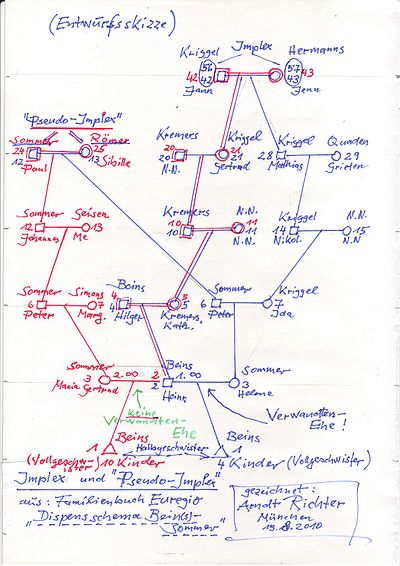 (Entwurfsskizze)
Kriggel Implex Hermanns
56 57
42 42 43 43
Jann Jenn
"Pseudo-Implex"
Sommer Römer
24 25
12 13
Paul Sibille
Kremers Kriggel Kriggel Quaden
20 21
20 21 28 29
N.N. Gertrud Mathias Grieten
Sommer Seisen
12 13
Johannes Me
Kremers N.N. Kriggel N.N.
10 11
10 11 14 15
N.N. Nikol. N.N
Sommer Simons Beins Sommer Kriggel
4 5
6 7 4 5 6 7
Peter Marg. Hilger Kremers Peter Ida
Kath.
Sommer Beins Sommer
3 2.00 2 1.00
2 3
Maria Gertrud Heinr. Helene
keine
Verwandten-
Ehe
Verwandten-
Ehe!
Beins Beins
1 Halbgeschwister 1
(Vollgeschwister) 10 Kinder 4 Kinder (Vollgeschwister)
Implex und "Pseudo-Implex"
aus: Familienbuch Euregio
"Dispensschema Bein(s)-
Sommer"
gezeichnet:
Arndt Richter
München
15.8.2010